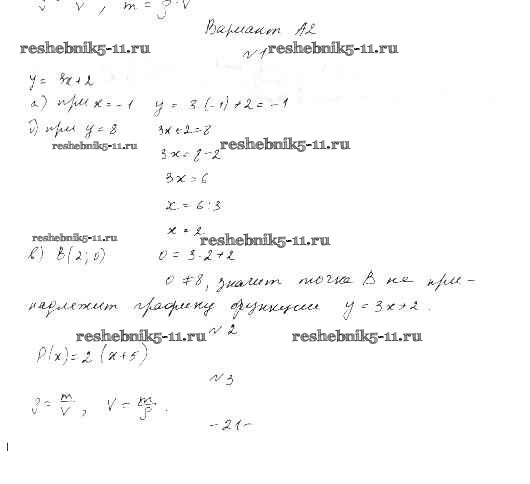 ρ = m/V, m = ρ·V
Вариант А2
reshebnik5-11.ru reshebnik5-11.ru
№1
y = 3x+2
а) при x=-1 y = 3·(-1)+2=-1
б) при y=8 3x+2=8
reshebnik5-11.ru reshebnik5-11.ru
3x=8-2
3x=6
x=6:3
x=2
reshebnik5-11.ru reshebnik5-11.ru
в) B(2;0) 0=3·2+2
0≠8, значит точка B не при-
надлежит графику функции y=3x+2.
№2
reshebnik5-11.ru reshebnik5-11.ru
P(x)=2(x+5)
№3
ρ=m/V, V=m/ρ.
-21-